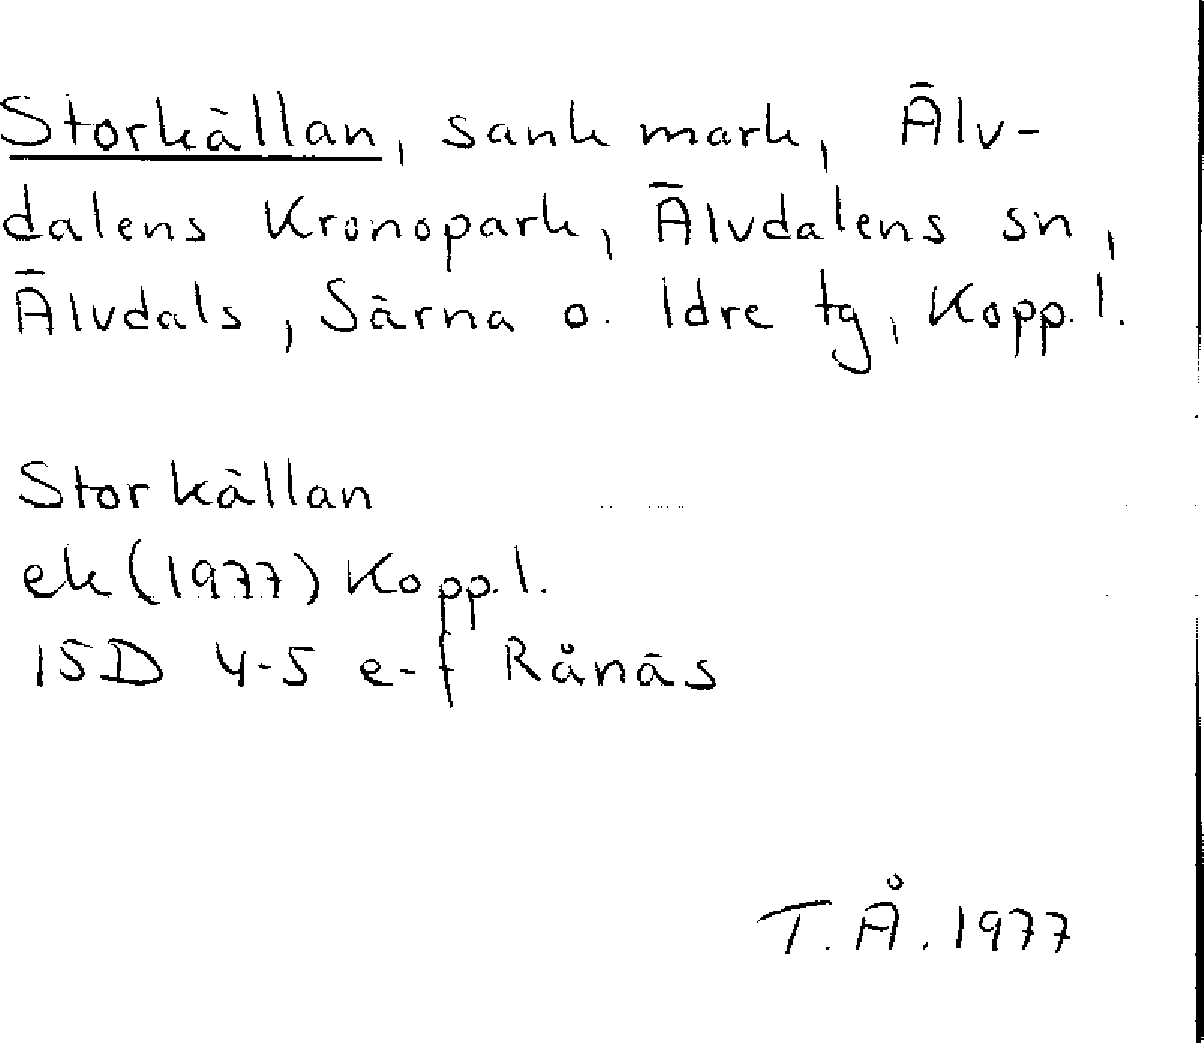 Storkällan, sank mark, Älv-
dalens Kronopark, Älvdalens sn,
Älvdals, Särna o. Idre tg, Kopp.l.
Storkällan
ek (1977) Kopp.l.
15D 4-5 e-f Rånäs
T.Å. 1977